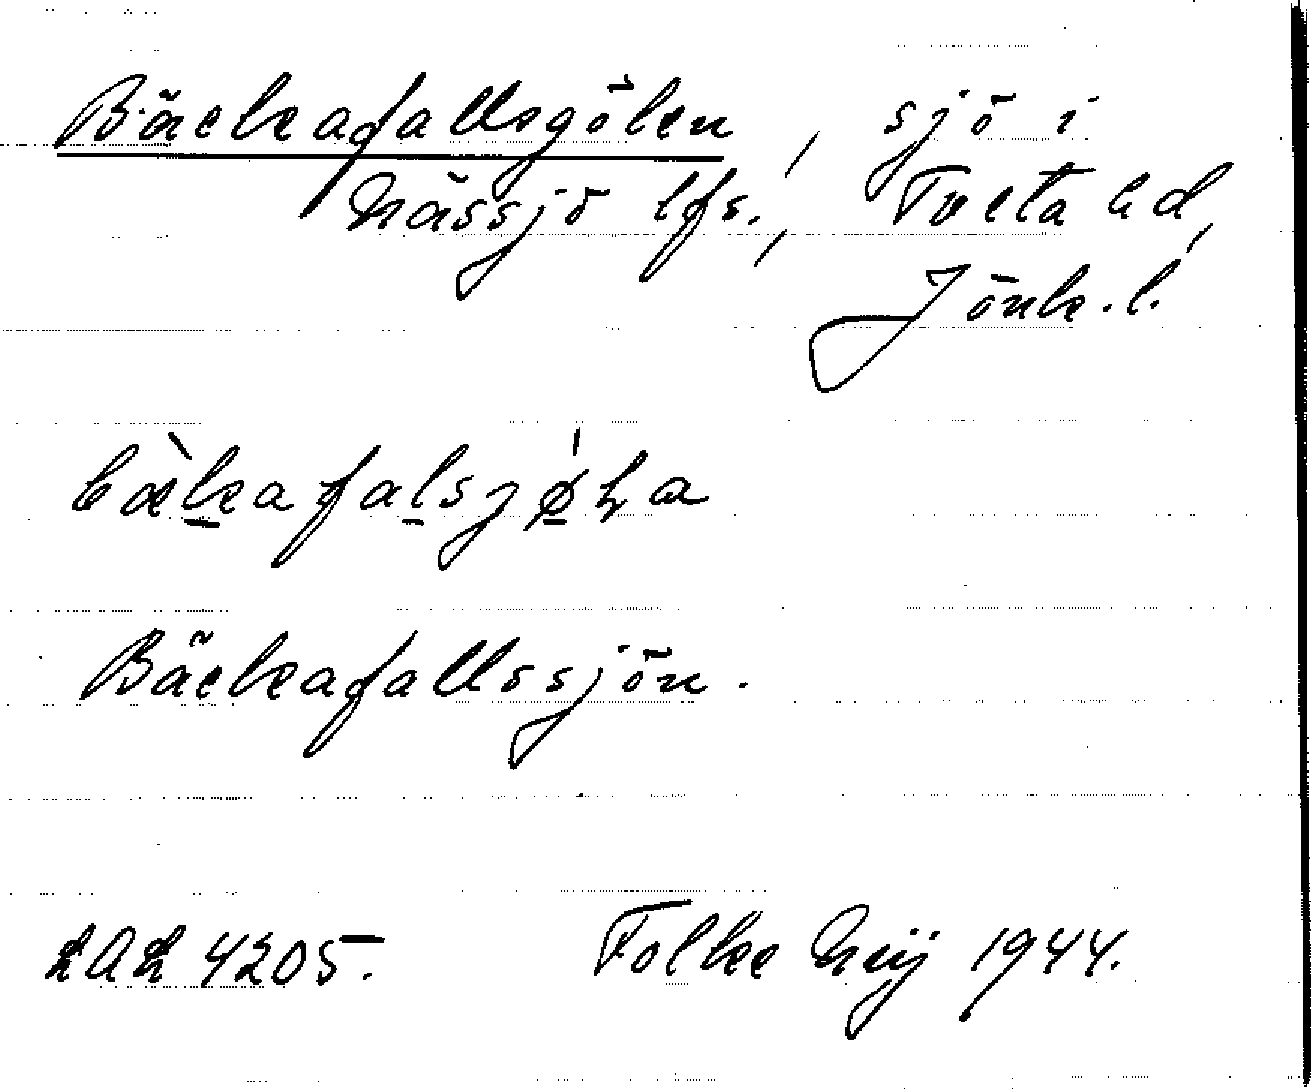 Bäckafallsgölen, sjö i
Nässjö lfs., Tveta hd,
Jönk. l.
bæ̀k̲afal̲sjǿ̲ɫa
Bäckafallssjön.
LAL 4205. Folke Neij 1944.